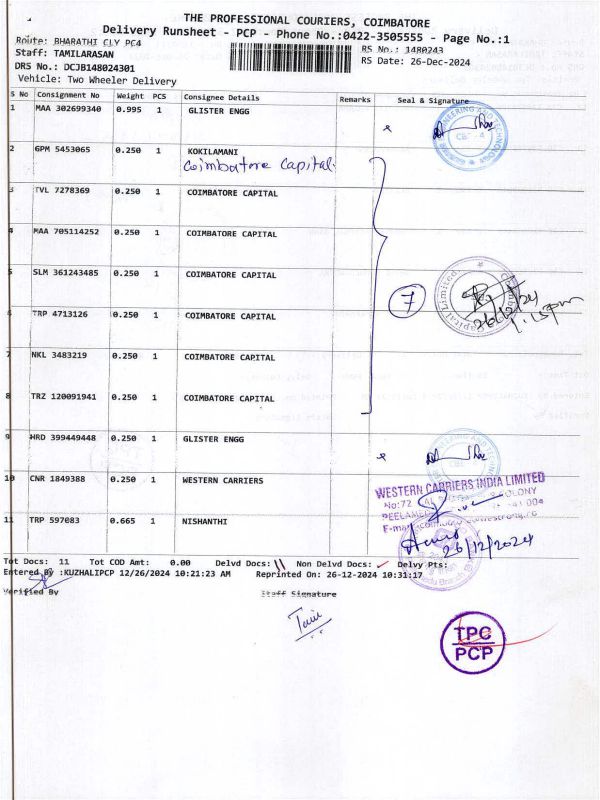 THE PROFESSIONAL COURIERS, COIMBATORE
Delivery Runsheet - PCP - Phone No.:0422-3505555 - Page No.:1
Route: BHARATHI CLY PC4
RS No.: 1480243
Staff: TAMILARASAN
RS Date: 26-Dec-2024
DRS No.: DCJB148024301
Vehicle: Two Wheeler Delivery
S No Consignment No Weight PCS Consignee Details Remarks Seal & Signature
1 MAA 302699340 0.995 1 GLISTER ENGG
2 GPM 5453065 0.250 1 KOKILAMANI
Coimbatore Capital.
3 TVL 7278369 0.250 1 COIMBATORE CAPITAL
4 MAA 705114252 0.250 1 COIMBATORE CAPITAL
5 SLM 361243485 0.250 1 COIMBATORE CAPITAL
7
26/12/24
1.15pm
6 TRP 4713126 0.250 1 COIMBATORE CAPITAL
7 NKL 3483219 0.250 1 COIMBATORE CAPITAL
8 TRZ 120091941 0.250 1 COIMBATORE CAPITAL
9 HRD 399449448 0.250 1 GLISTER ENGG
10 CNR 1849388 0.250 1 WESTERN CARRIERS
WESTERN CARRIERS INDIA LIMITED
No:72
COLONY
11 TRP 597083 0.665 1 NISHANTHI
26/12/2024
Tot Docs: 11 Tot COD Amt: 0.00 Delvd Docs: 11 Non Delvd Docs: Delvy Pts:
Entered By :KUZHALIPCP 12/26/2024 10:21:23 AM Reprinted On: 26-12-2024 10:31:17
Verified By Staff Signature
TPC
PCP